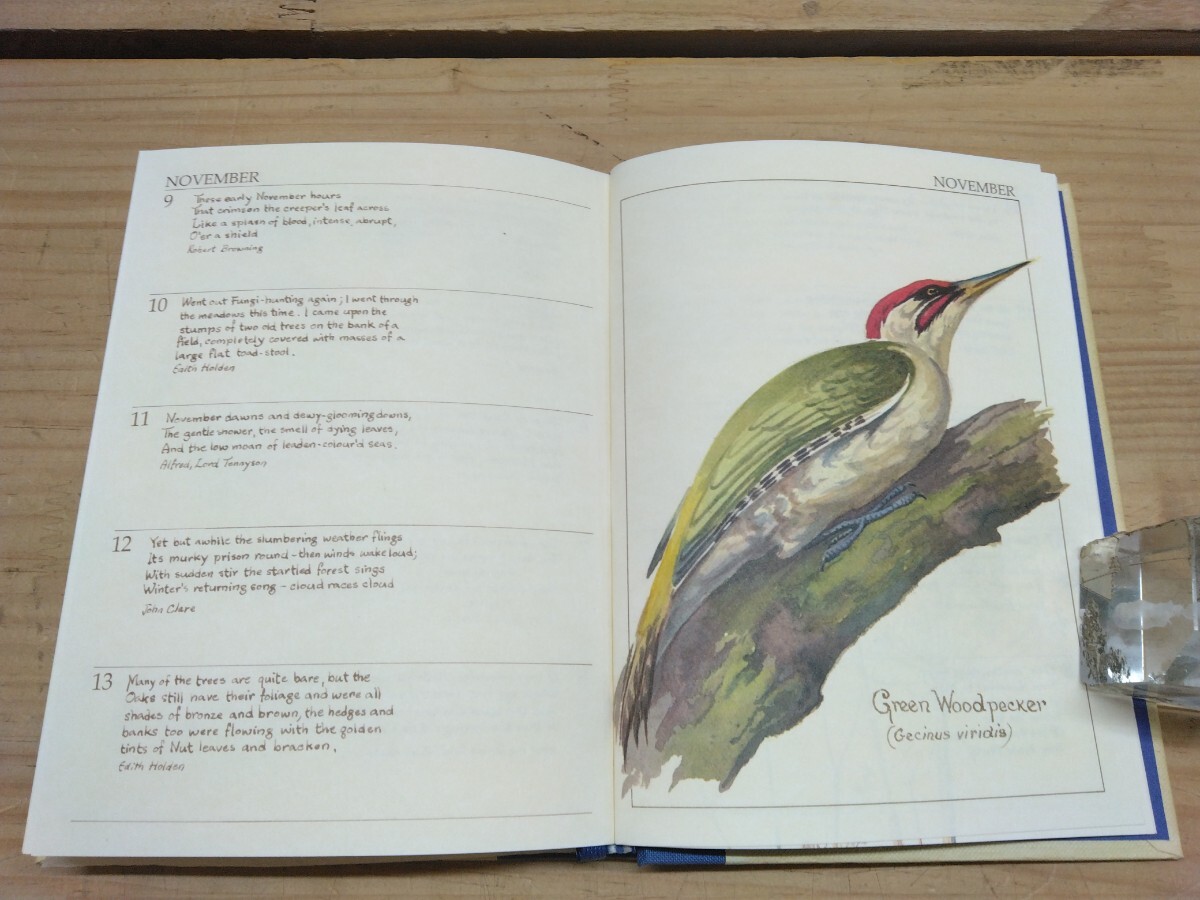 NOVEMBER
9 These early November hours
That crimson the creeper's leaf across
Like a splash of blood, intense, abrupt,
O'er a shield
Robert Browning
10 Went out Fungi-hunting again; I went through
the meadows this time. I came upon the
stumps of two old trees on the bank of a
field, completely covered with masses of a
large flat toad-stool.
Edith Holden
11 November dawns and dewy-glooming downs,
The gentle shower, the smell of dying leaves,
And the low moan of leaden-colour'd seas.
Alfred, Lord Tennyson
12 Yet but awhile the slumbering weather flings
Its murky prison round - then winds wake loud;
With sudden stir the startled forest sings
Winter's returning song - cloud races cloud
John Clare
13 Many of the trees are quite bare, but the
Oaks still have their foliage and were all
shades of bronze and brown, the hedges and
banks too were flowing with the golden
tints of Nut leaves and bracken,
Edith Holden
NOVEMBER
Green Woodpecker
(Gecinus viridis)